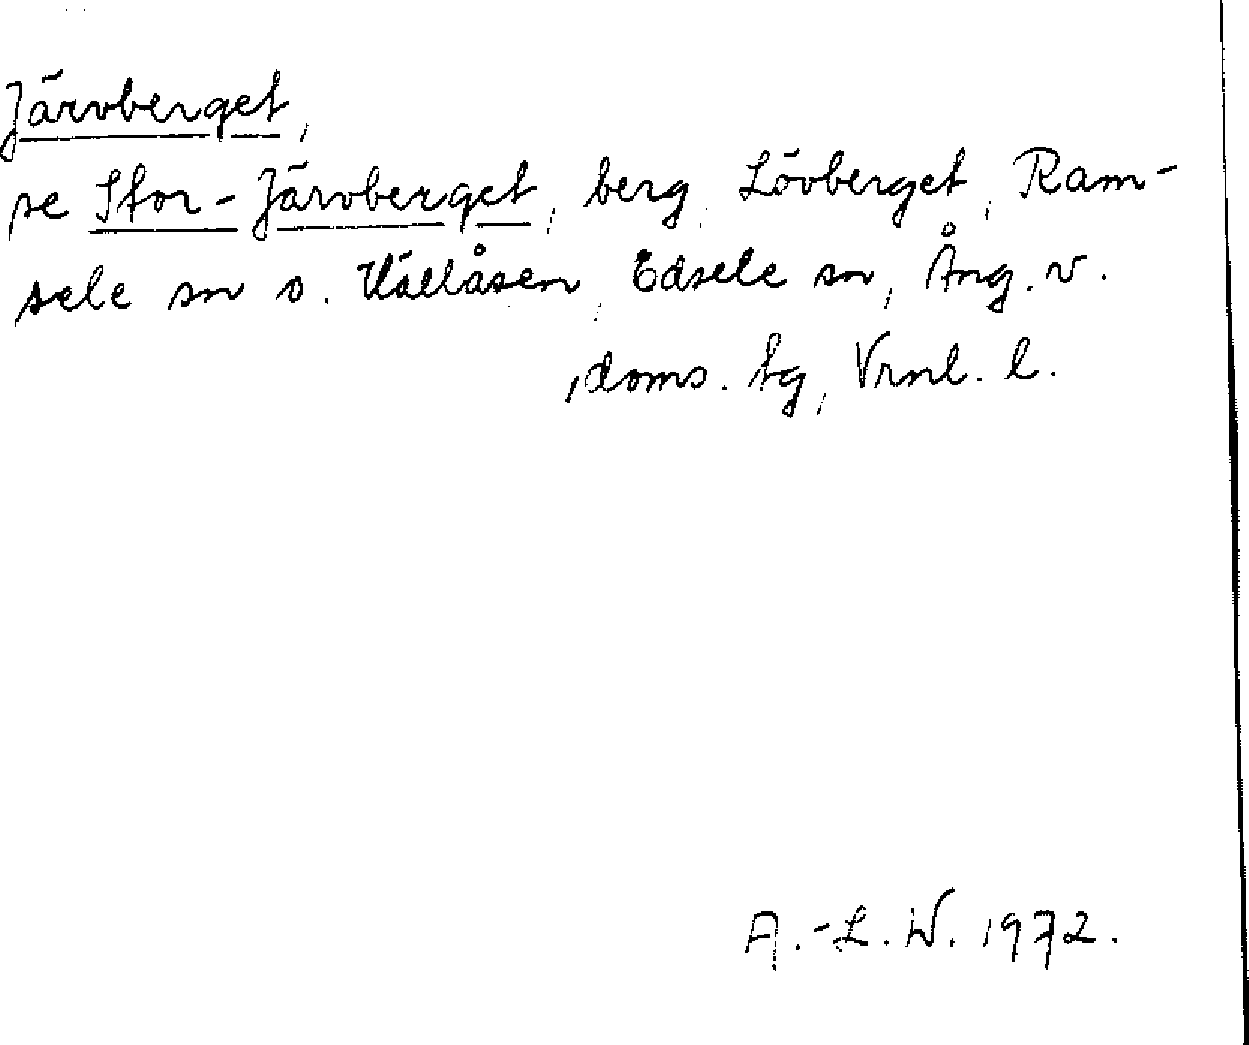 Järvberget,
se Stor-Järvberget, berg, Lövberget, Ram-
sele sn o. Hällåsen, Edsele sn, Ång. v.
doms. tg, Vrnl. l.
A.-L. W. 1972.